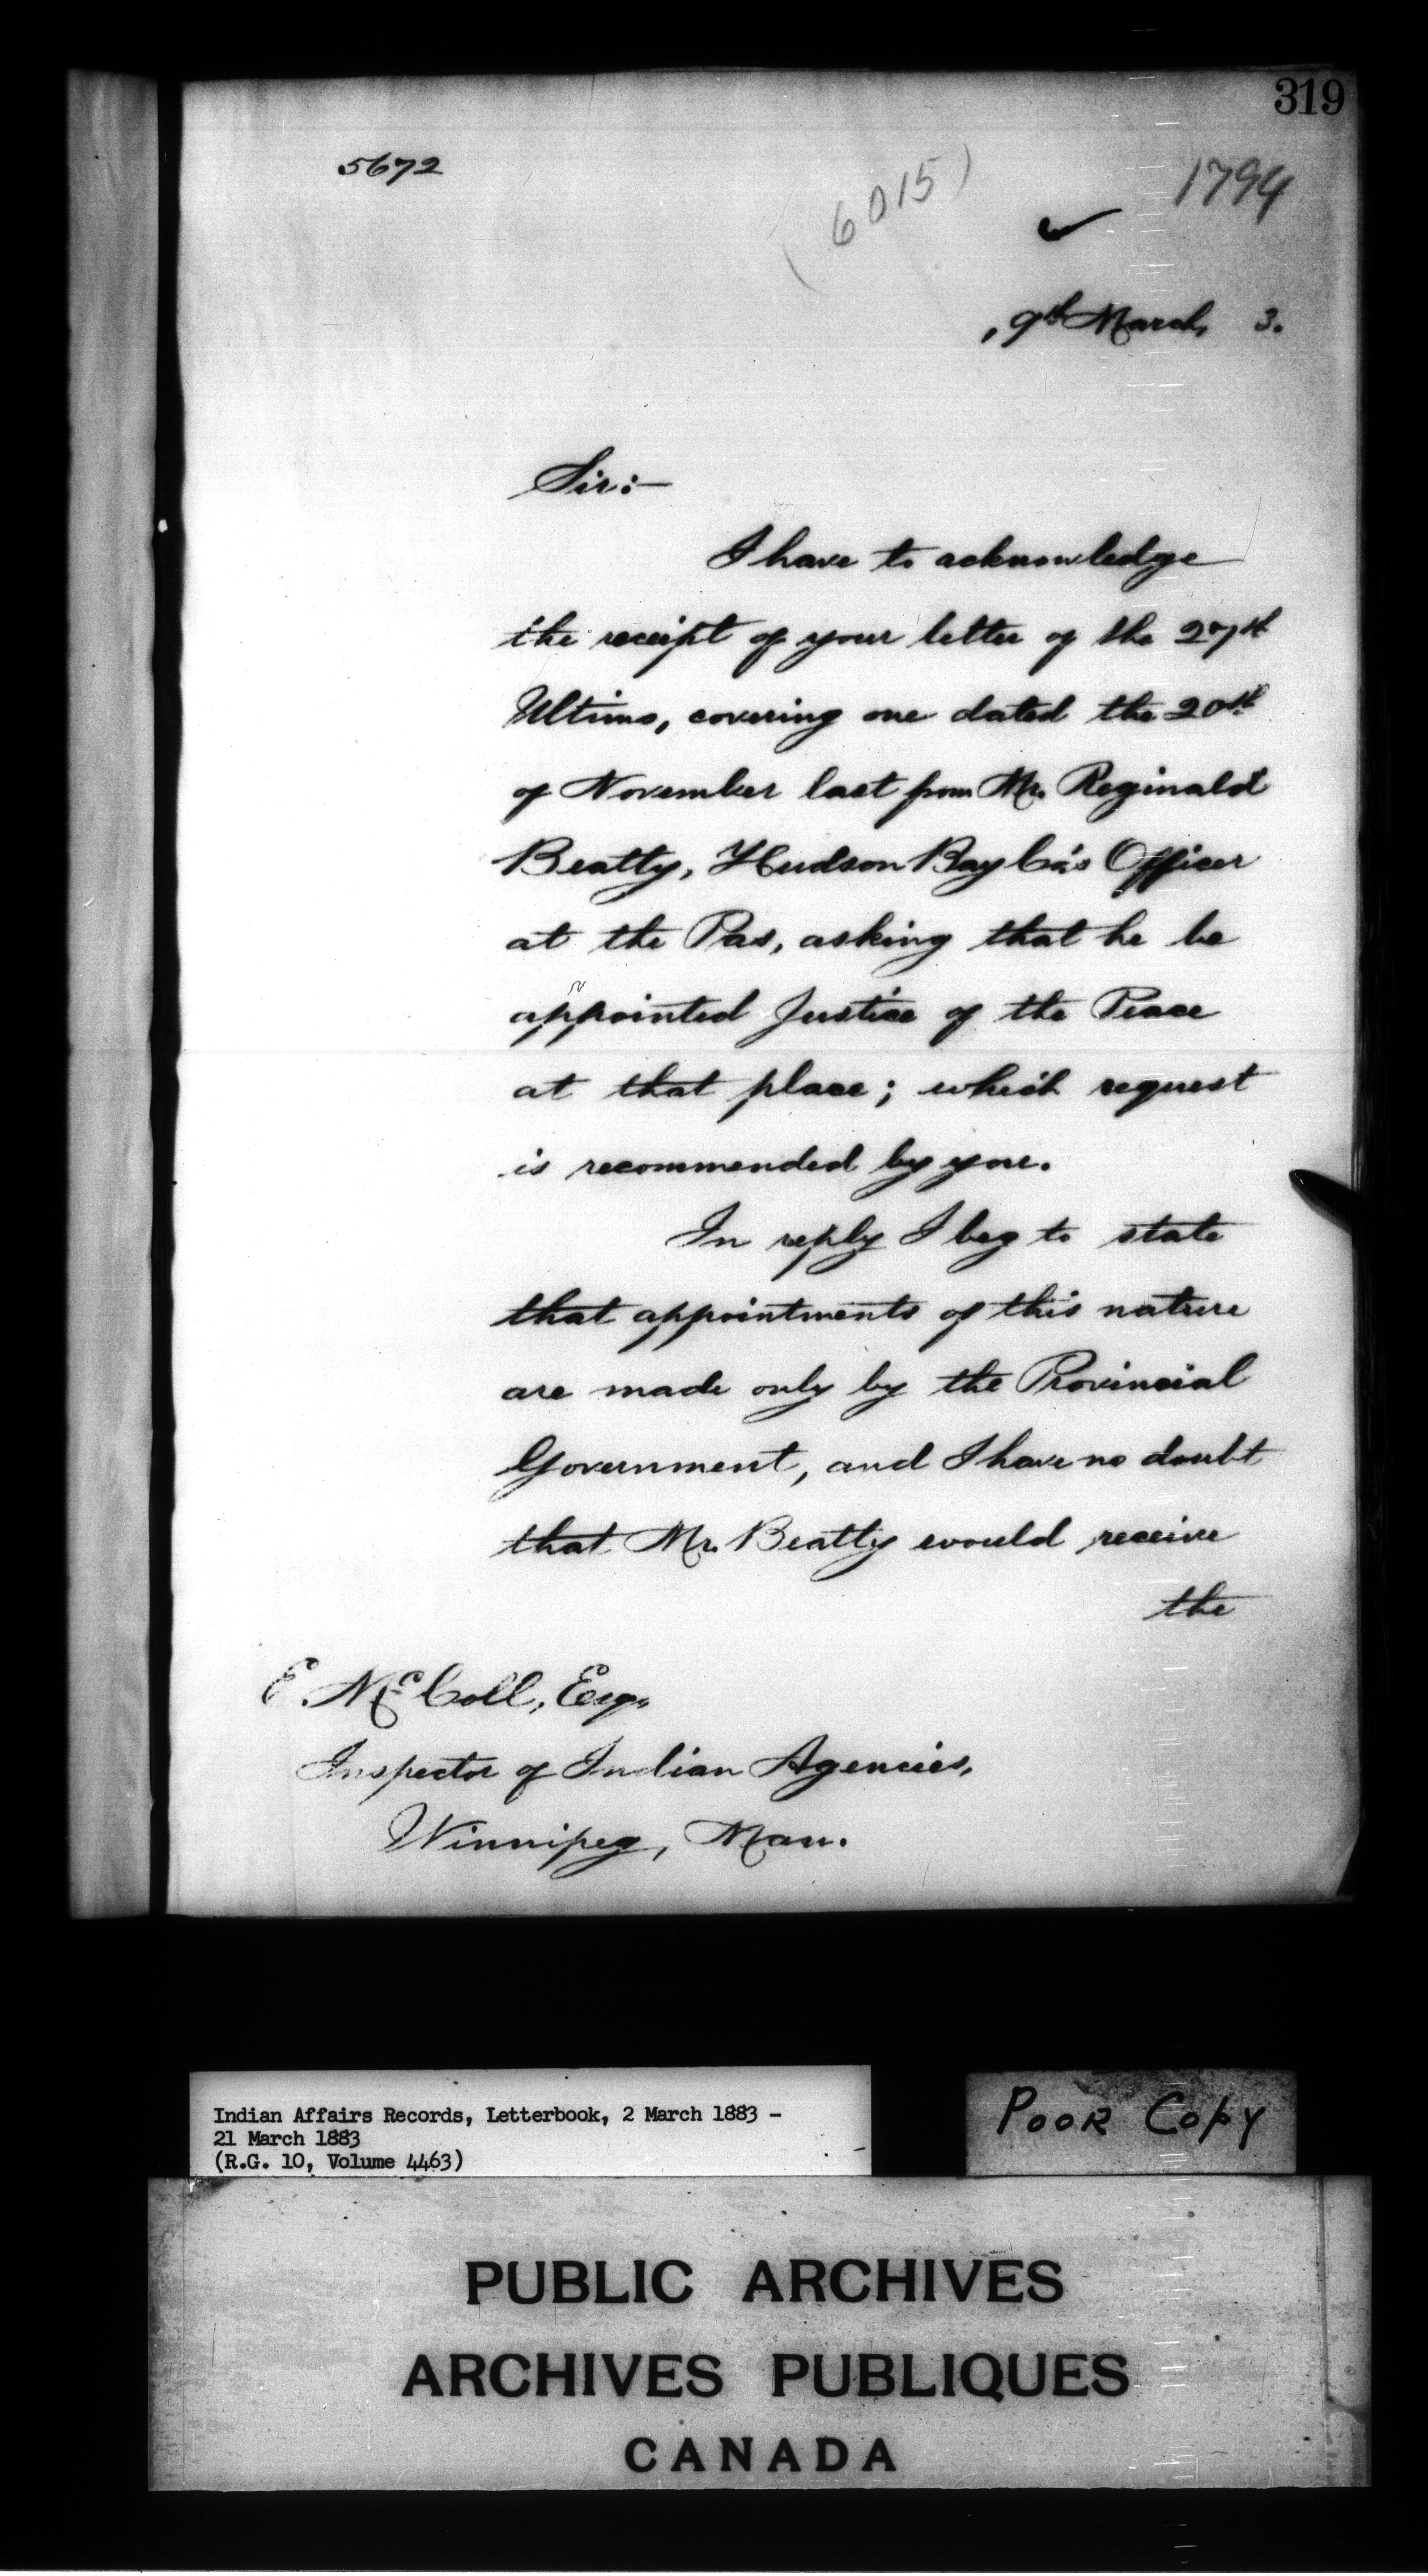 319
5672
(6015)
1794
, 9th March, 3.
Sir:—
I have to acknowledge
the receipt of your letter of the 27th
Ultimo, covering one dated the 20th
of November last from Mr. Reginald
Beatty, Hudson Bay Co's Officer
at the Pas, asking that he be
appointed Justice of the Peace
at that place; which request
is recommended by you.
In reply I beg to state
that appointments of this nature
are made only by the Provincial
Government, and I have no doubt
that Mr. Beatty would receive
the
E. McColl, Esq.
Inspector of Indian Agencies,
Winnipeg, Man.
Indian Affairs Records, Letterbook, 2 March 1883 -
21 March 1883
(R.G. 10, Volume 4463)
Poor Copy
PUBLIC ARCHIVES
ARCHIVES PUBLIQUES
CANADA